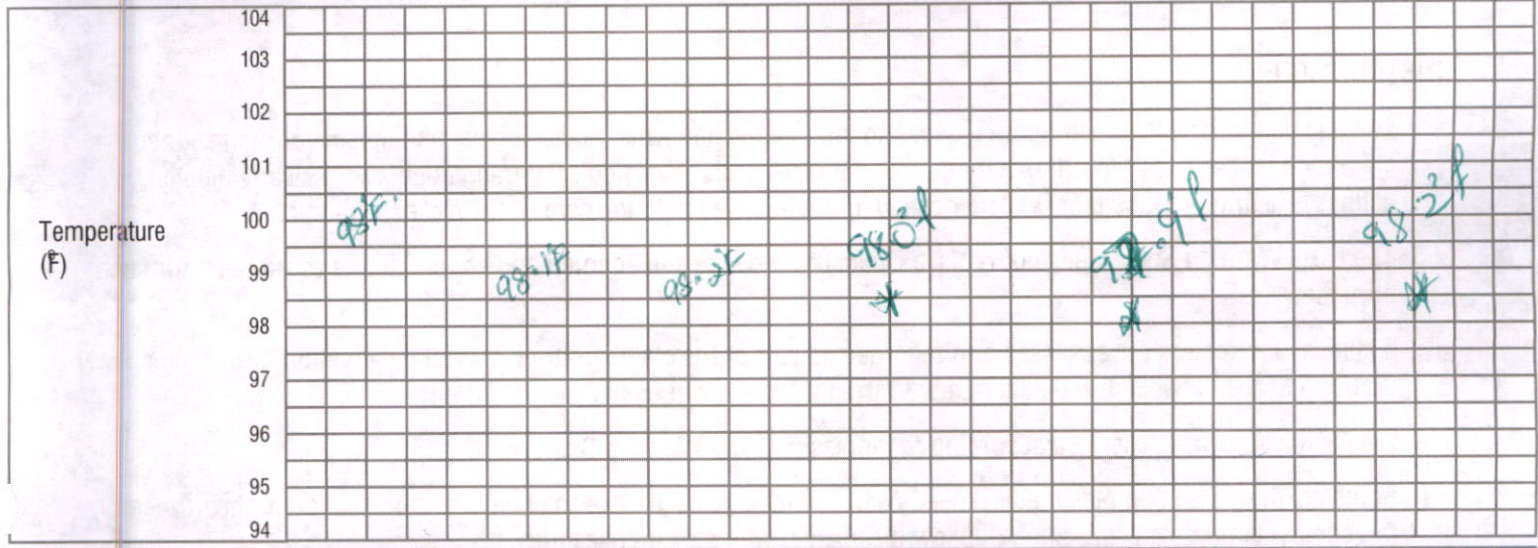 104
103
102
101
100
99
98
97
96
95
94
Temperature
(°F)
98°F.
98.1°F
98.2°F
98.0°f
.9°f
98.2°f